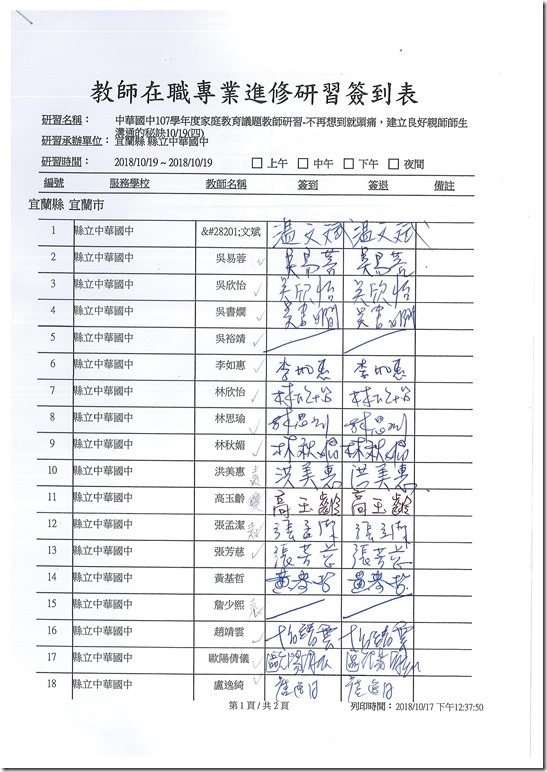 教師在職專業進修研習簽到表
研習名稱： 中華國中107學年度家庭教育議題教師研習-不再想到就頭痛，建立良好親師師生
溝通的秘訣10/19(四)
研習承辦單位： 宜蘭縣 縣立中華國中
研習時間： 2018/10/19 ~ 2018/10/19 □ 上午 □ 中午 □ 下午 □ 夜間
編號 服務學校 教師名稱 簽到 簽退 備註
宜蘭縣 宜蘭市
1 縣立中華國中 &#28201;文斌 溫文斌 溫文斌
2 縣立中華國中 吳易蓉 吳易蓉 吳易蓉
3 縣立中華國中 吳欣怡 吳欣怡 吳欣怡
4 縣立中華國中 吳書嫺 吳書嫺 吳書嫺
5 縣立中華國中 吳裕靖
6 縣立中華國中 李如惠 李如惠 李如惠
7 縣立中華國中 林欣怡 林欣怡 林欣怡
8 縣立中華國中 林思瑜 林思瑜 林思瑜
9 縣立中華國中 林秋媚 林秋媚 林秋媚
10 縣立中華國中 洪美惠 洪美惠 洪美惠
11 縣立中華國中 高玉齡 高玉齡 高玉齡
12 縣立中華國中 張孟潔 張孟潔 張孟潔
13 縣立中華國中 張芳慈 張芳慈 張芳慈
14 縣立中華國中 黃基哲 黃基哲 黃基哲
15 縣立中華國中 詹少熙
16 縣立中華國中 趙靖雲 趙靖雲 趙靖雲
17 縣立中華國中 歐陽倩儀
18 縣立中華國中 盧逸綺
第 1 頁 / 共 2 頁
列印時間：2018/10/17 下午12:37:50